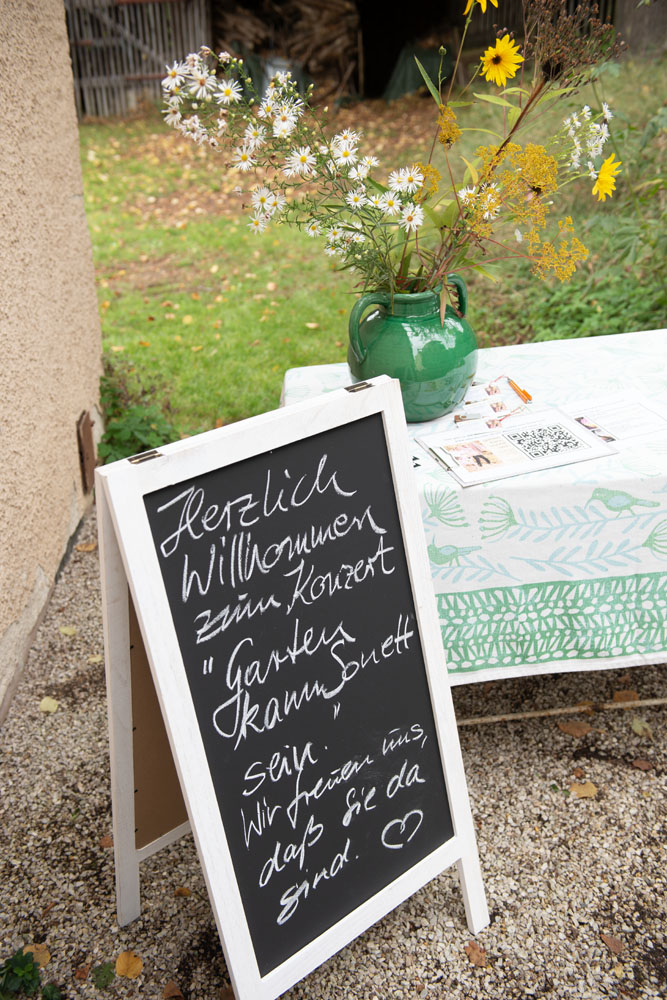 Herzlich
Willkommen
zum Konzert
"Garten
kann Sonett
sein."
Wir freuen uns,
daß Sie da
sind. ♡